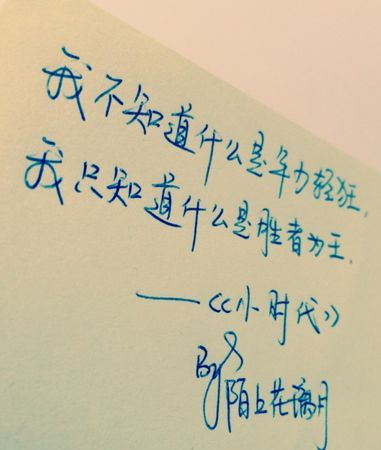 我不知道什么是年少轻狂,
我只知道什么是胜者为王.
——《小时代》
By 陌上花漓月